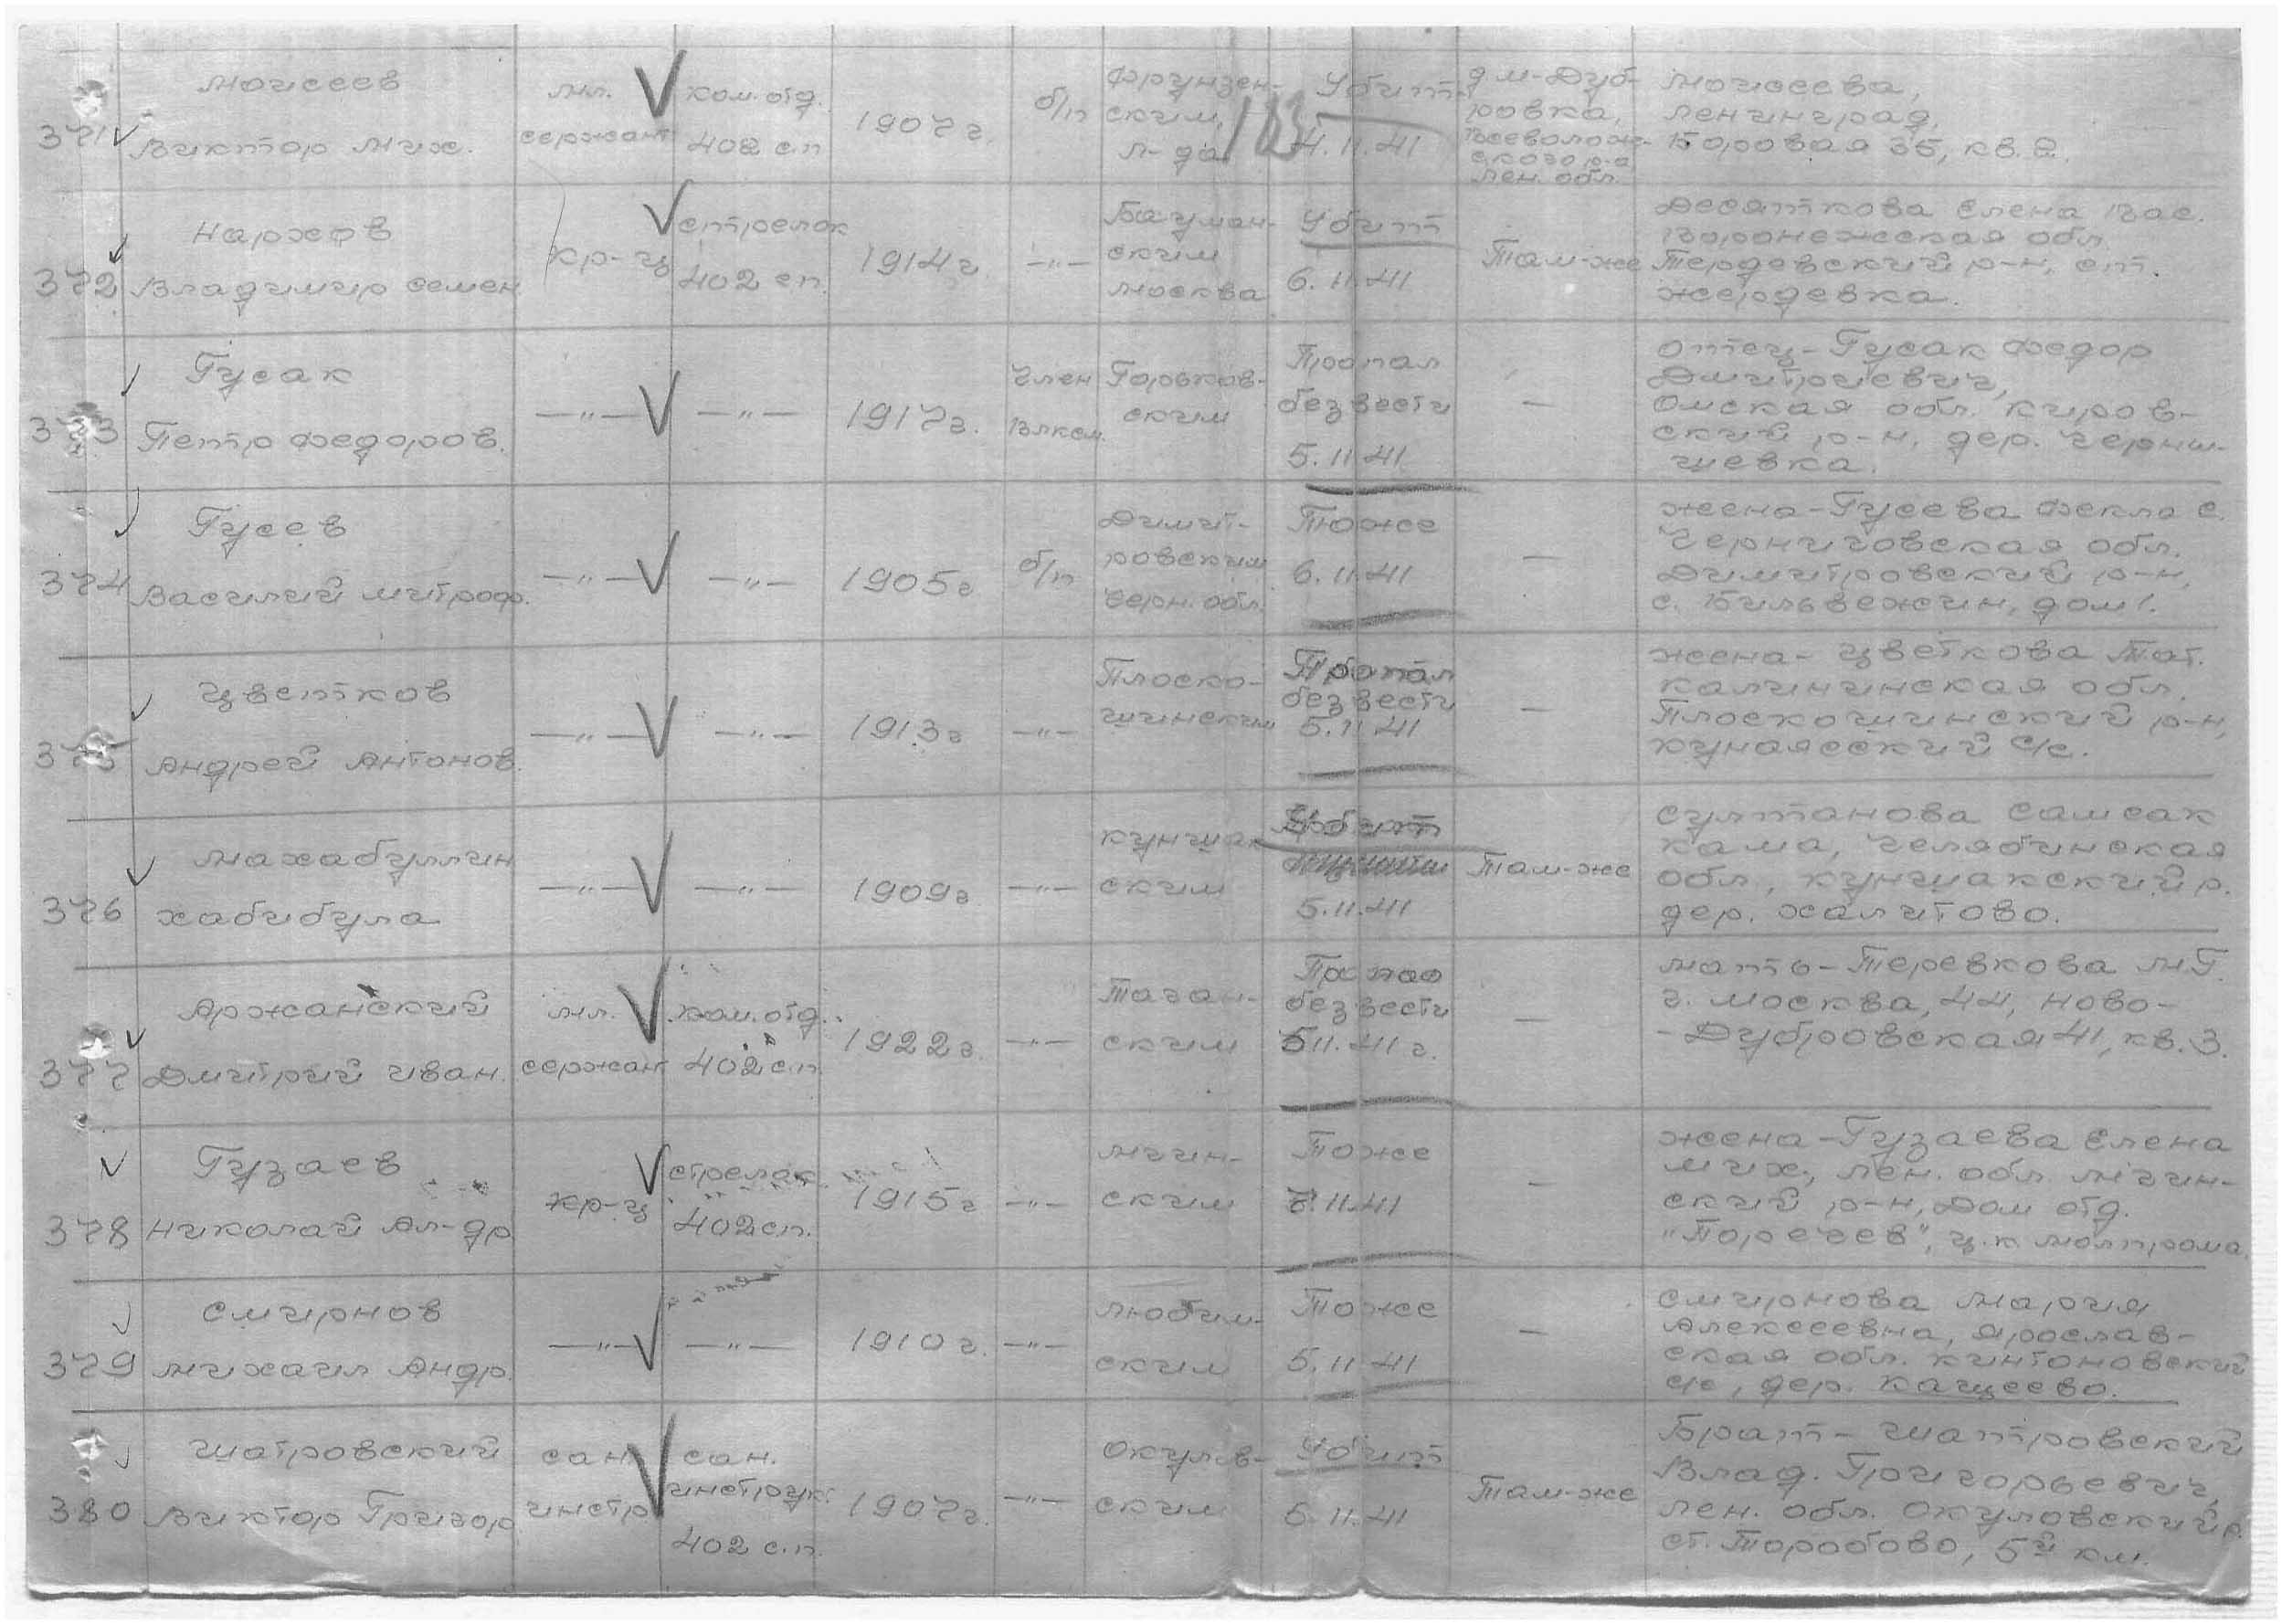 183
371 Моисеев
Виктор Мих.
мл.
сержант
ком. отд.
402 с.п.
1907 г.
б/п
Фрунзен-
ским,
Л-да
Убит
4.11.41
д. М-Дуб-
ровка,
Всеволож-
ского р-а
Лен. обл.
Моисеева,
Ленинград,
Боровая 35, кв. 2.
372 Нархов
Владимир Семен.
кр-ц
стрелок
402 сп.
1914 г.
—"—
Бауман-
ским
Москва
Убит
6.11.41
Там-же
Десяткова Елена Вас.
Воронежская обл.
Тердевский р-н, ст.
Жердевка.
373 Гусак
Петр Федоров.
—"—
—"—
1917 г.
Член
ВЛКСМ.
Горьков-
ским
Пропал
без вести
5.11.41
—
отец - Гусак Федор
Дмитриевич,
Омская обл. Киров-
ский р-н, дер. Черни-
гиевка.
374 Гусев
Василий Митроф.
—"—
—"—
1905 г
б/п
Димит-
ровским
Черн. обл.
Тоже
6.11.41
—
жена - Гусева Фекла С.
Черниговская обл.
Димитровский р-н,
с. Бильвежин, дом 1.
375 Цветков
Андрей Антонов.
—"—
—"—
1913 г
—"—
Плоско-
шинским
Пропал
без вести
5.11.41
—
жена - Цветкова Тат.
Калининская обл.
Плоскошинский р-н,
с/с.
376 Махабуллин
Хабибула
—"—
—"—
1909 г
—"—
Куншак
ским
Убит
5.11.41
Там-же
Султанова Самсак
Кама, Челябинская
обл., Куншакский р.
дер. Халитово.
377 Аржанский
Дмитрий Иван.
мл.
сержан
ком. отд.
402 с.п.
1922 г.
—"—
Таган-
ским
Пропал
без вести
5 11.41 г.
—
мать - Теревкова М.Г.
г. Москва, 44, Ново-
-Дубровская 41, кв. 3.
378 Гузаев
Николай Ал-др
кр-ц
стрелок
402 сп.
1915 г
—"—
Мгин-
ским
Тоже
7.11.41
—
жена - Гузаева Елена
Мих., Лен. обл. Мгин-
ский р-н, Дом отд.
"Поречев", ц.к молпрома.
379 Смирнов
Михаил Андр.
—"—
—"—
1910 г.
—"—
Любим-
ским
Тоже
5.11.41
—
Смирнова Мария
Алексеевна, Ярослав-
ская обл. Кинтоновский
с/с, дер. Кащеево.
380 Шатровский
Виктор Григор
сан.
инстр
сан.
инструк.
402 с.п.
1907 г.
—"—
Окулов-
ским
Убит
5.11.41
Там-же
Брат - Шатровский
Влад. Григорьевич,
Лен. обл. Окуловский р.
ст. Торобово, 5й км.